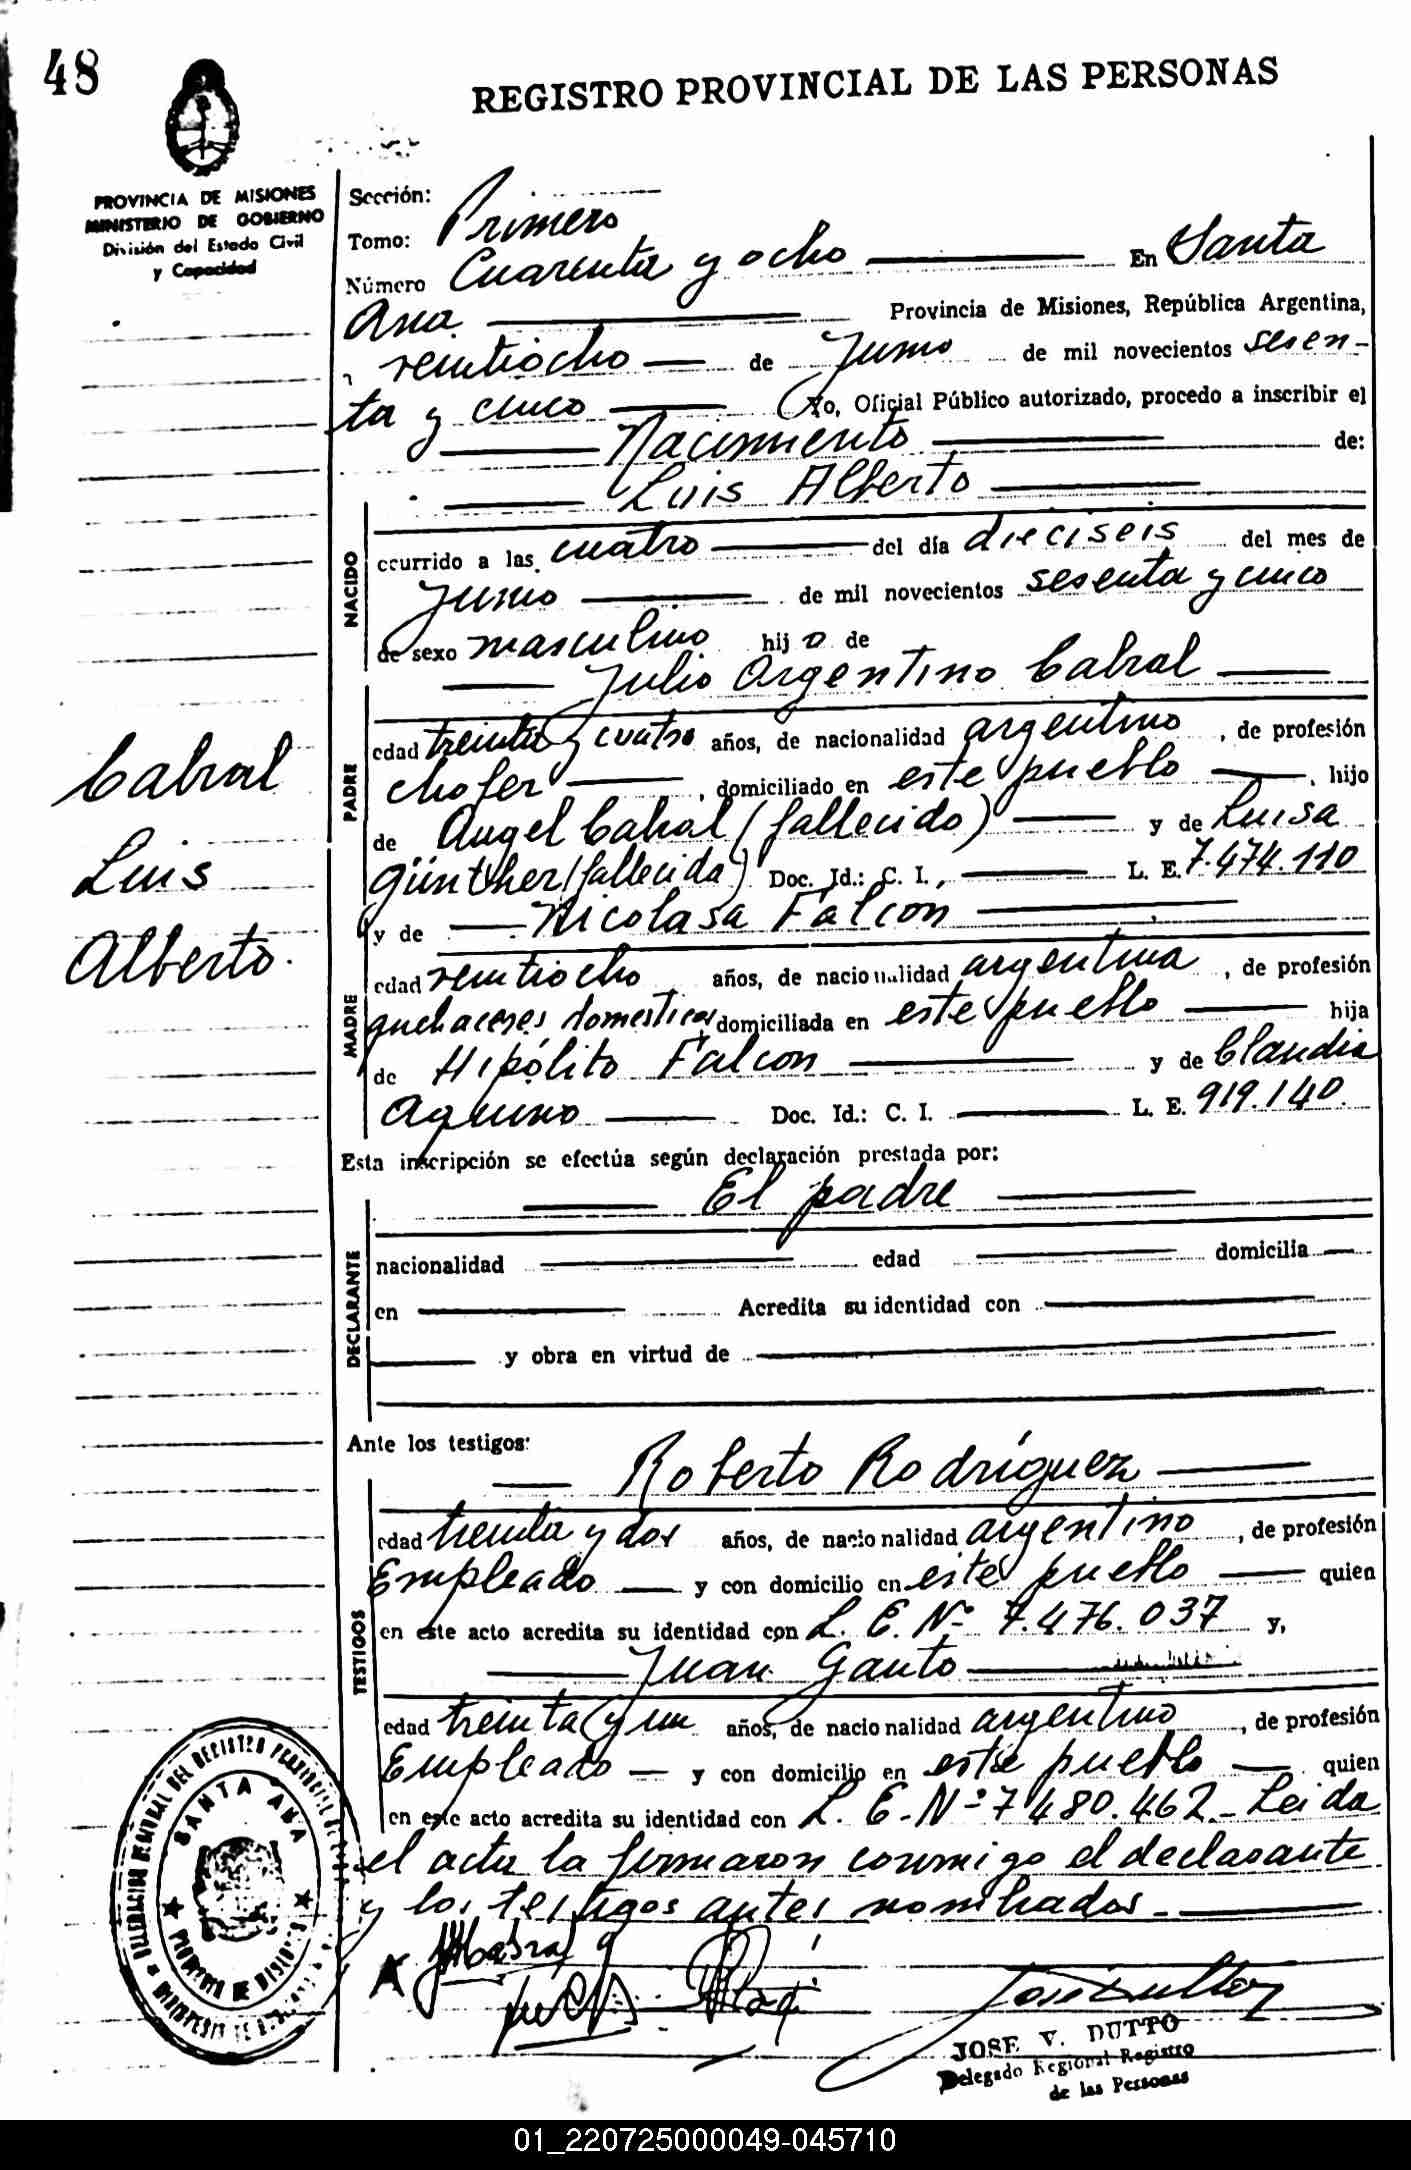 48
REGISTRO PROVINCIAL DE LAS PERSONAS
PROVINCIA DE MISIONES
MINISTERIO DE GOBIERNO
División del Estado Civil
y Capacidad
Sección:
Tomo: Primero
Número Cuarenta y ocho En Santa
Ana Provincia de Misiones, República Argentina,
veintiocho de Junio de mil novecientos sesen-
ta y cinco Yo, Oficial Público autorizado, procedo a inscribir el
Nacimiento de:
Luis Alberto
NACIDO
ocurrido a las cuatro del día dieciseis del mes de
Junio de mil novecientos sesenta y cinco
de sexo masculino hijo de
Julio Argentino Cabral
PADRE
edad treinta y cuatro años, de nacionalidad argentino, de profesión
chofer, domiciliado en este pueblo, hijo
de Angel Cabral (fallecido) y de Luisa
Günther (fallecida) Doc. Id.: C. I., L. E. 7.474.110
y de Nicolasa Falcon
Cabral
Luis
Alberto.
MADRE
edad veintiocho años, de nacionalidad argentina, de profesión
quehaceres domesticos domiciliada en este pueblo hija
de Hipólito Falcon y de Claudia
Aquino Doc. Id.: C. I. L. E. 919.140
Esta inscripción se efectúa según declaración prestada por:
El padre
DECLARANTE
nacionalidad edad domicilia
en Acredita su identidad con
y obra en virtud de
Ante los testigos:
Roberto Rodríguez
TESTIGOS
edad treinta y dos años, de nacionalidad argentino, de profesión
Empleado y con domicilio en este pueblo quien
en este acto acredita su identidad con L. E. Nº 7.476.037 y,
Juan Gauto
edad treinta y un años, de nacionalidad argentino, de profesión
Empleado y con domicilio en este pueblo quien
en este acto acredita su identidad con L. E. Nº 7.480.462 - Leida
el acta la firmaron conmigo el declarante
y los testigos antes nombrados.
SANTA ANA
PROVINCIA DE MISIONES
JOSE V. DUTTO
Delegado Regional Registro
de las Personas
01_220725000049-045710